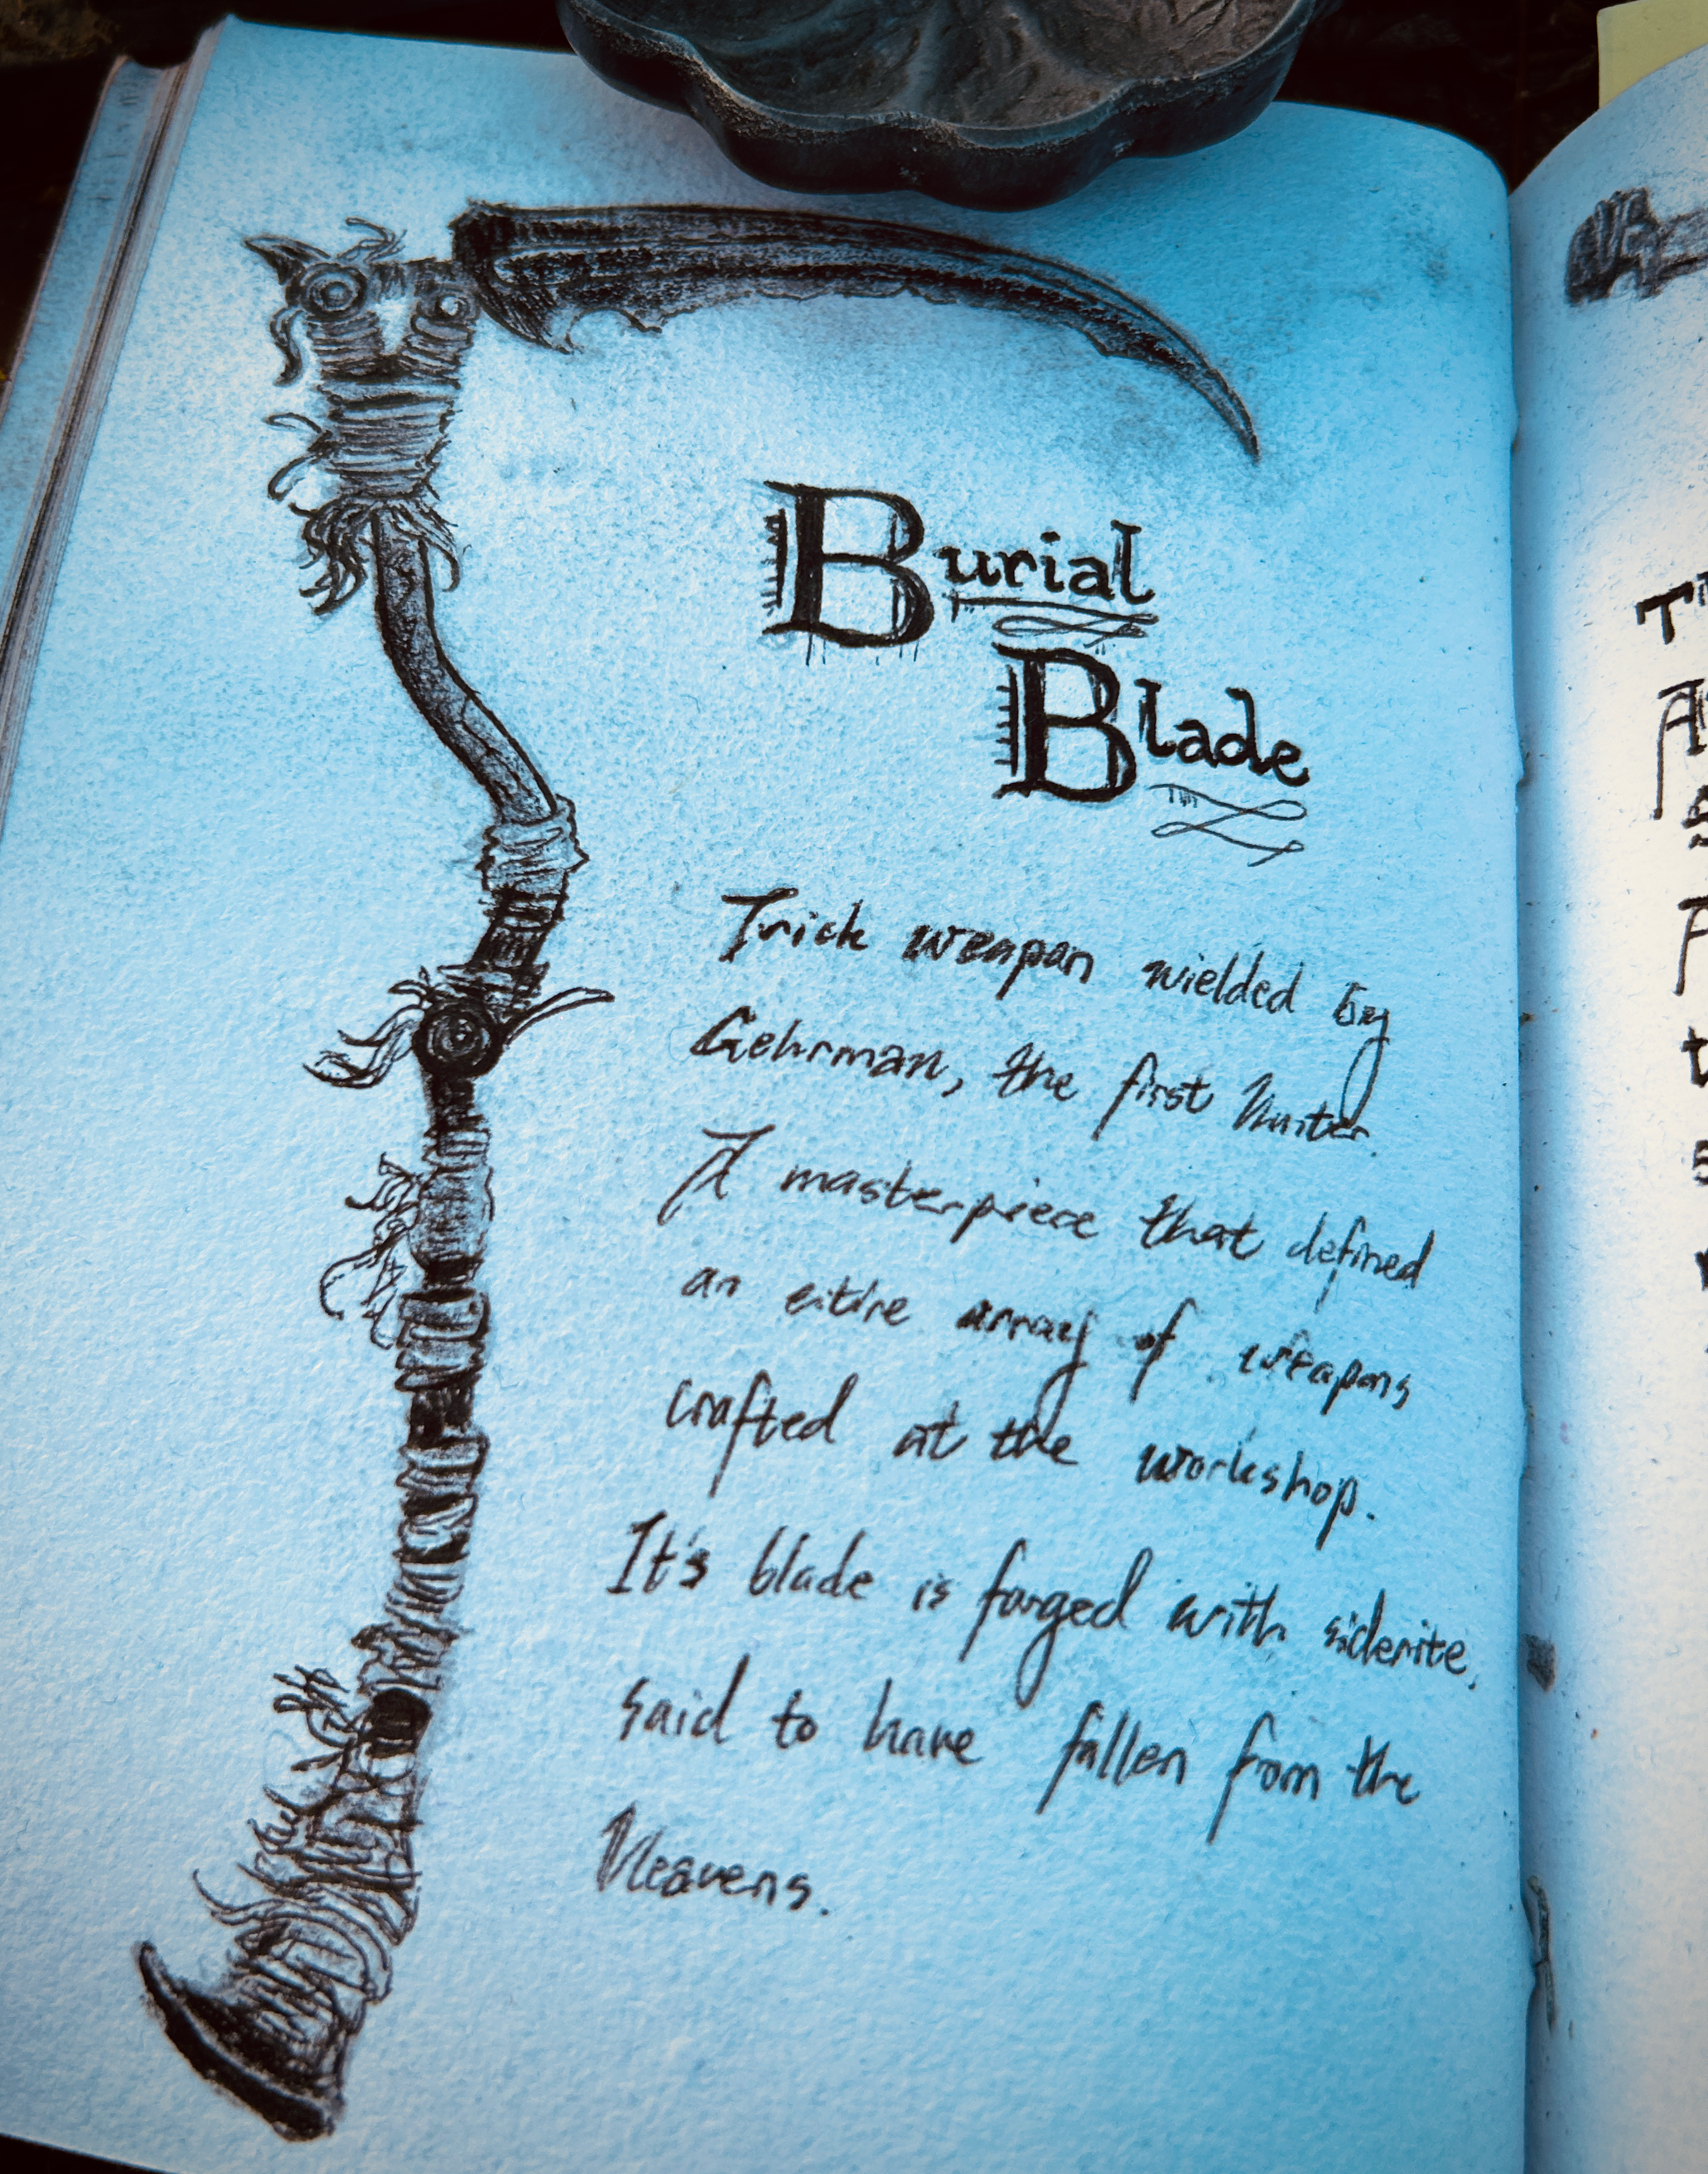 Burial
Blade
Trick weapon wielded by
Gehrman, the first hunter.
A masterpiece that defined
an eitire array of weapons
crafted at the workshop.
It's blade is forged with siderite,
said to have fallen from the
Heavens.